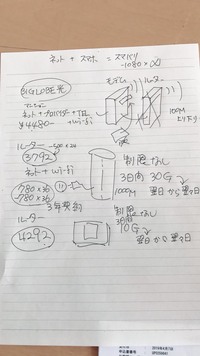 ネット + スマホ = スマバリ
-1080 × ∞
BIGLOBE光
モデム
ルーター
ネット + プロバイダー + TEL
¥4480- + wi-fi
100M
ルーター -500×24
3792
ネット + wi-fi
780×36
-780×36
3年契約
1000M
制限なし
3日間 30G
翌日から翌々日
ルーター
4292
制限なし
3日間
10G
翌日から翌々日